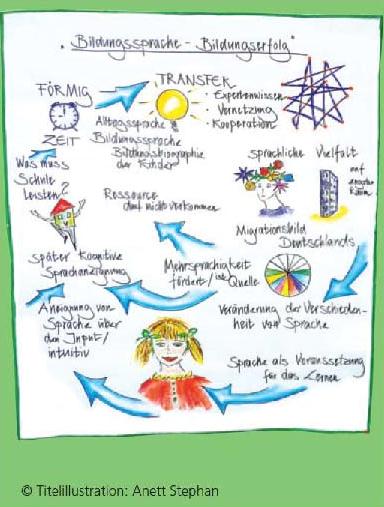 „Bildungssprache - Bildungserfolg"
FÖRMIG
ZEIT
TRANSFER
· Expertenwissen
· Vernetzung
· Kooperation
Alltagssprache &
Bildungssprache
Bildungsbiographie
der Kinder
Was muss
Schule
leisten?
Ressource
darf nicht verkommen
sprachliche Vielfalt
auf
Raum
Migrationsbild
Deutschlands
später Kognitive
Sprachaneignung
Mehrsprachigkeit
fördert/ist Quelle
Veränderung der Verschieden-
heit von Sprache
Aneignung von
Sprache über
den Input/
intuitiv
Sprache als Voraussetzung
für das Lernen
© Titelillustration: Anett Stephan